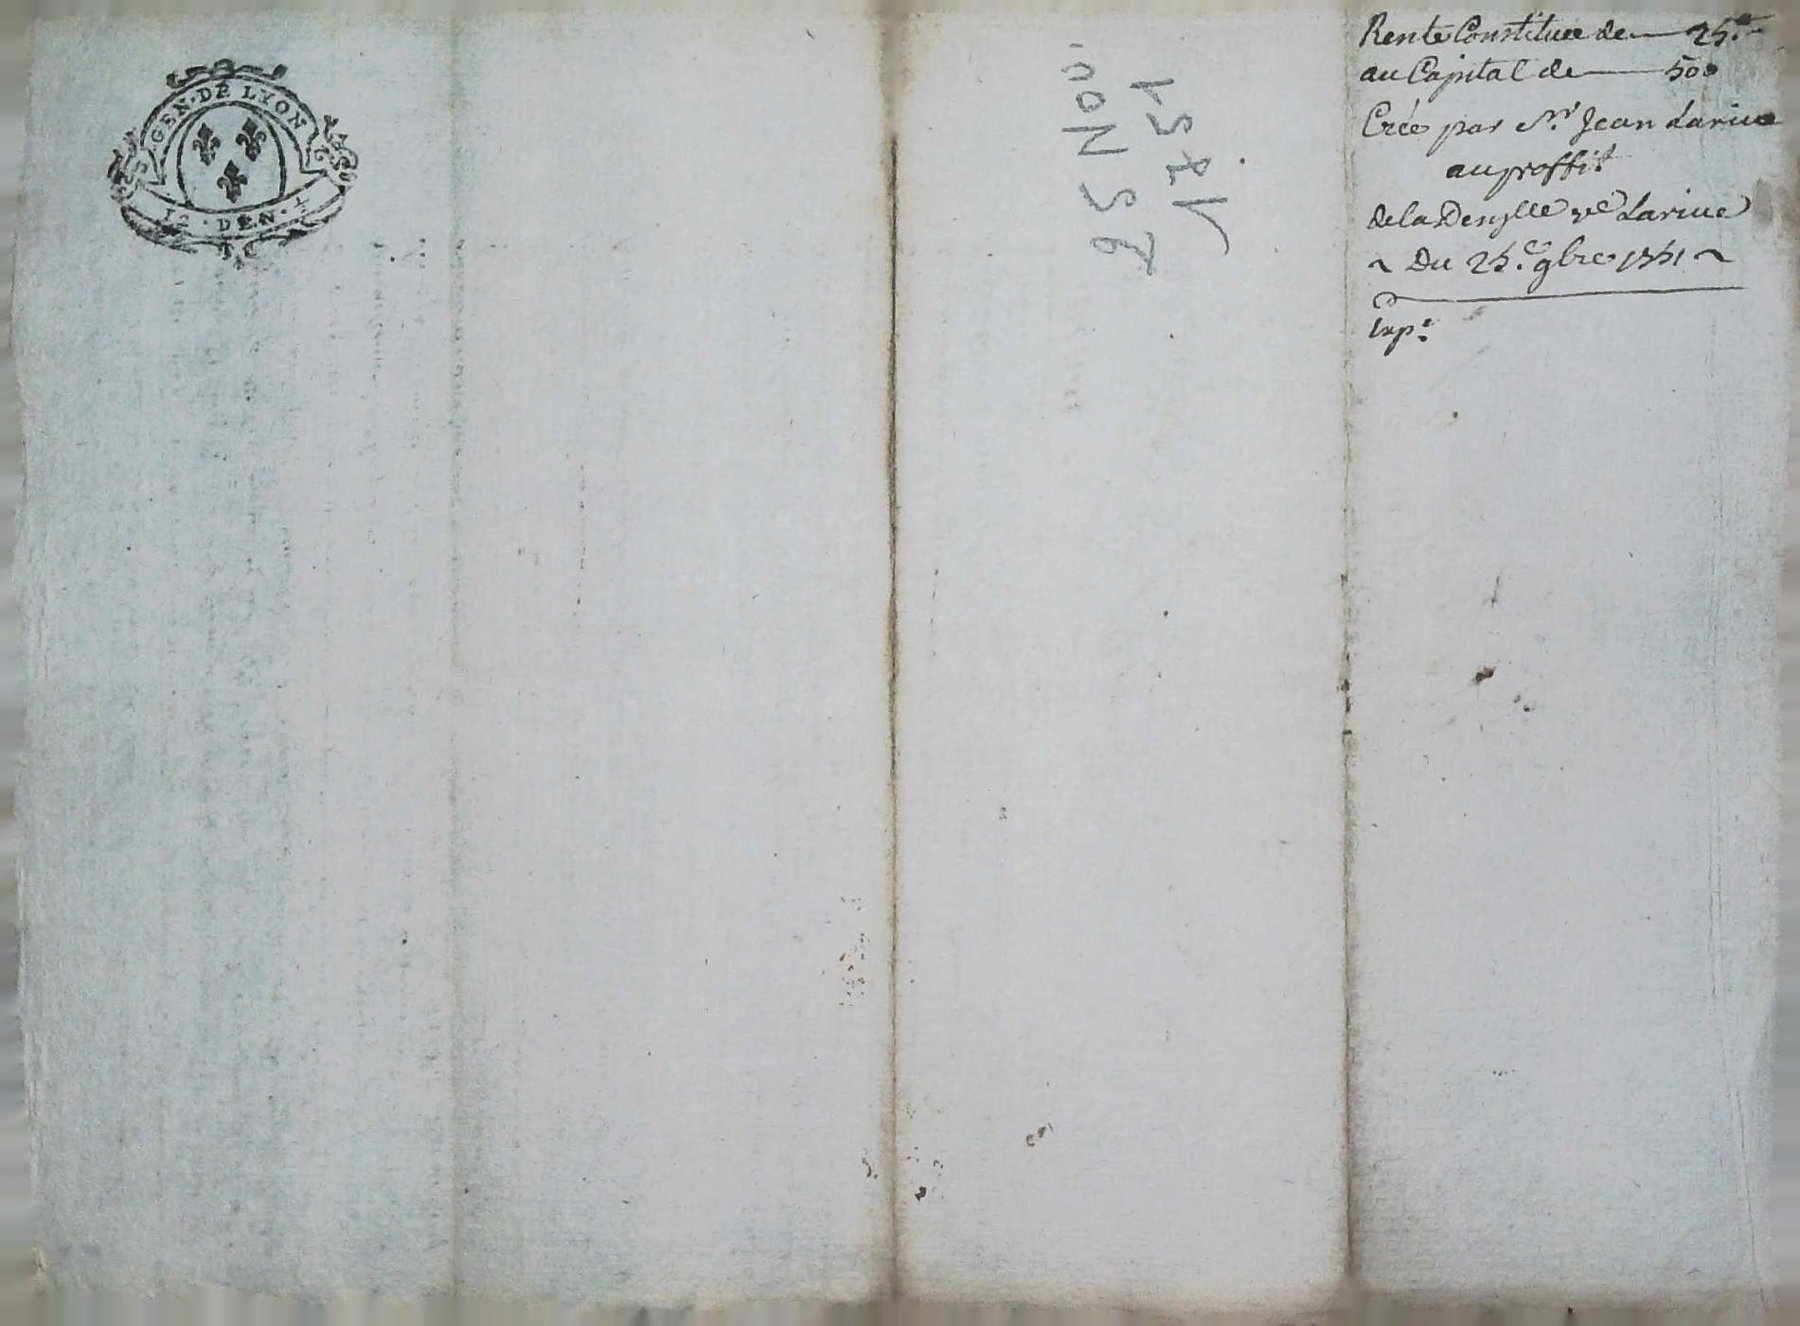 GEN·DE LYON
12·DEN·
25 Nov.
1751
Rente Constituée de — 25.#
au Capital de — 500
Créée par Sr. Jean Larive
au proffit
de la Delle Larive
~ Du 25.e 9bre 1751 ~
Exp.e